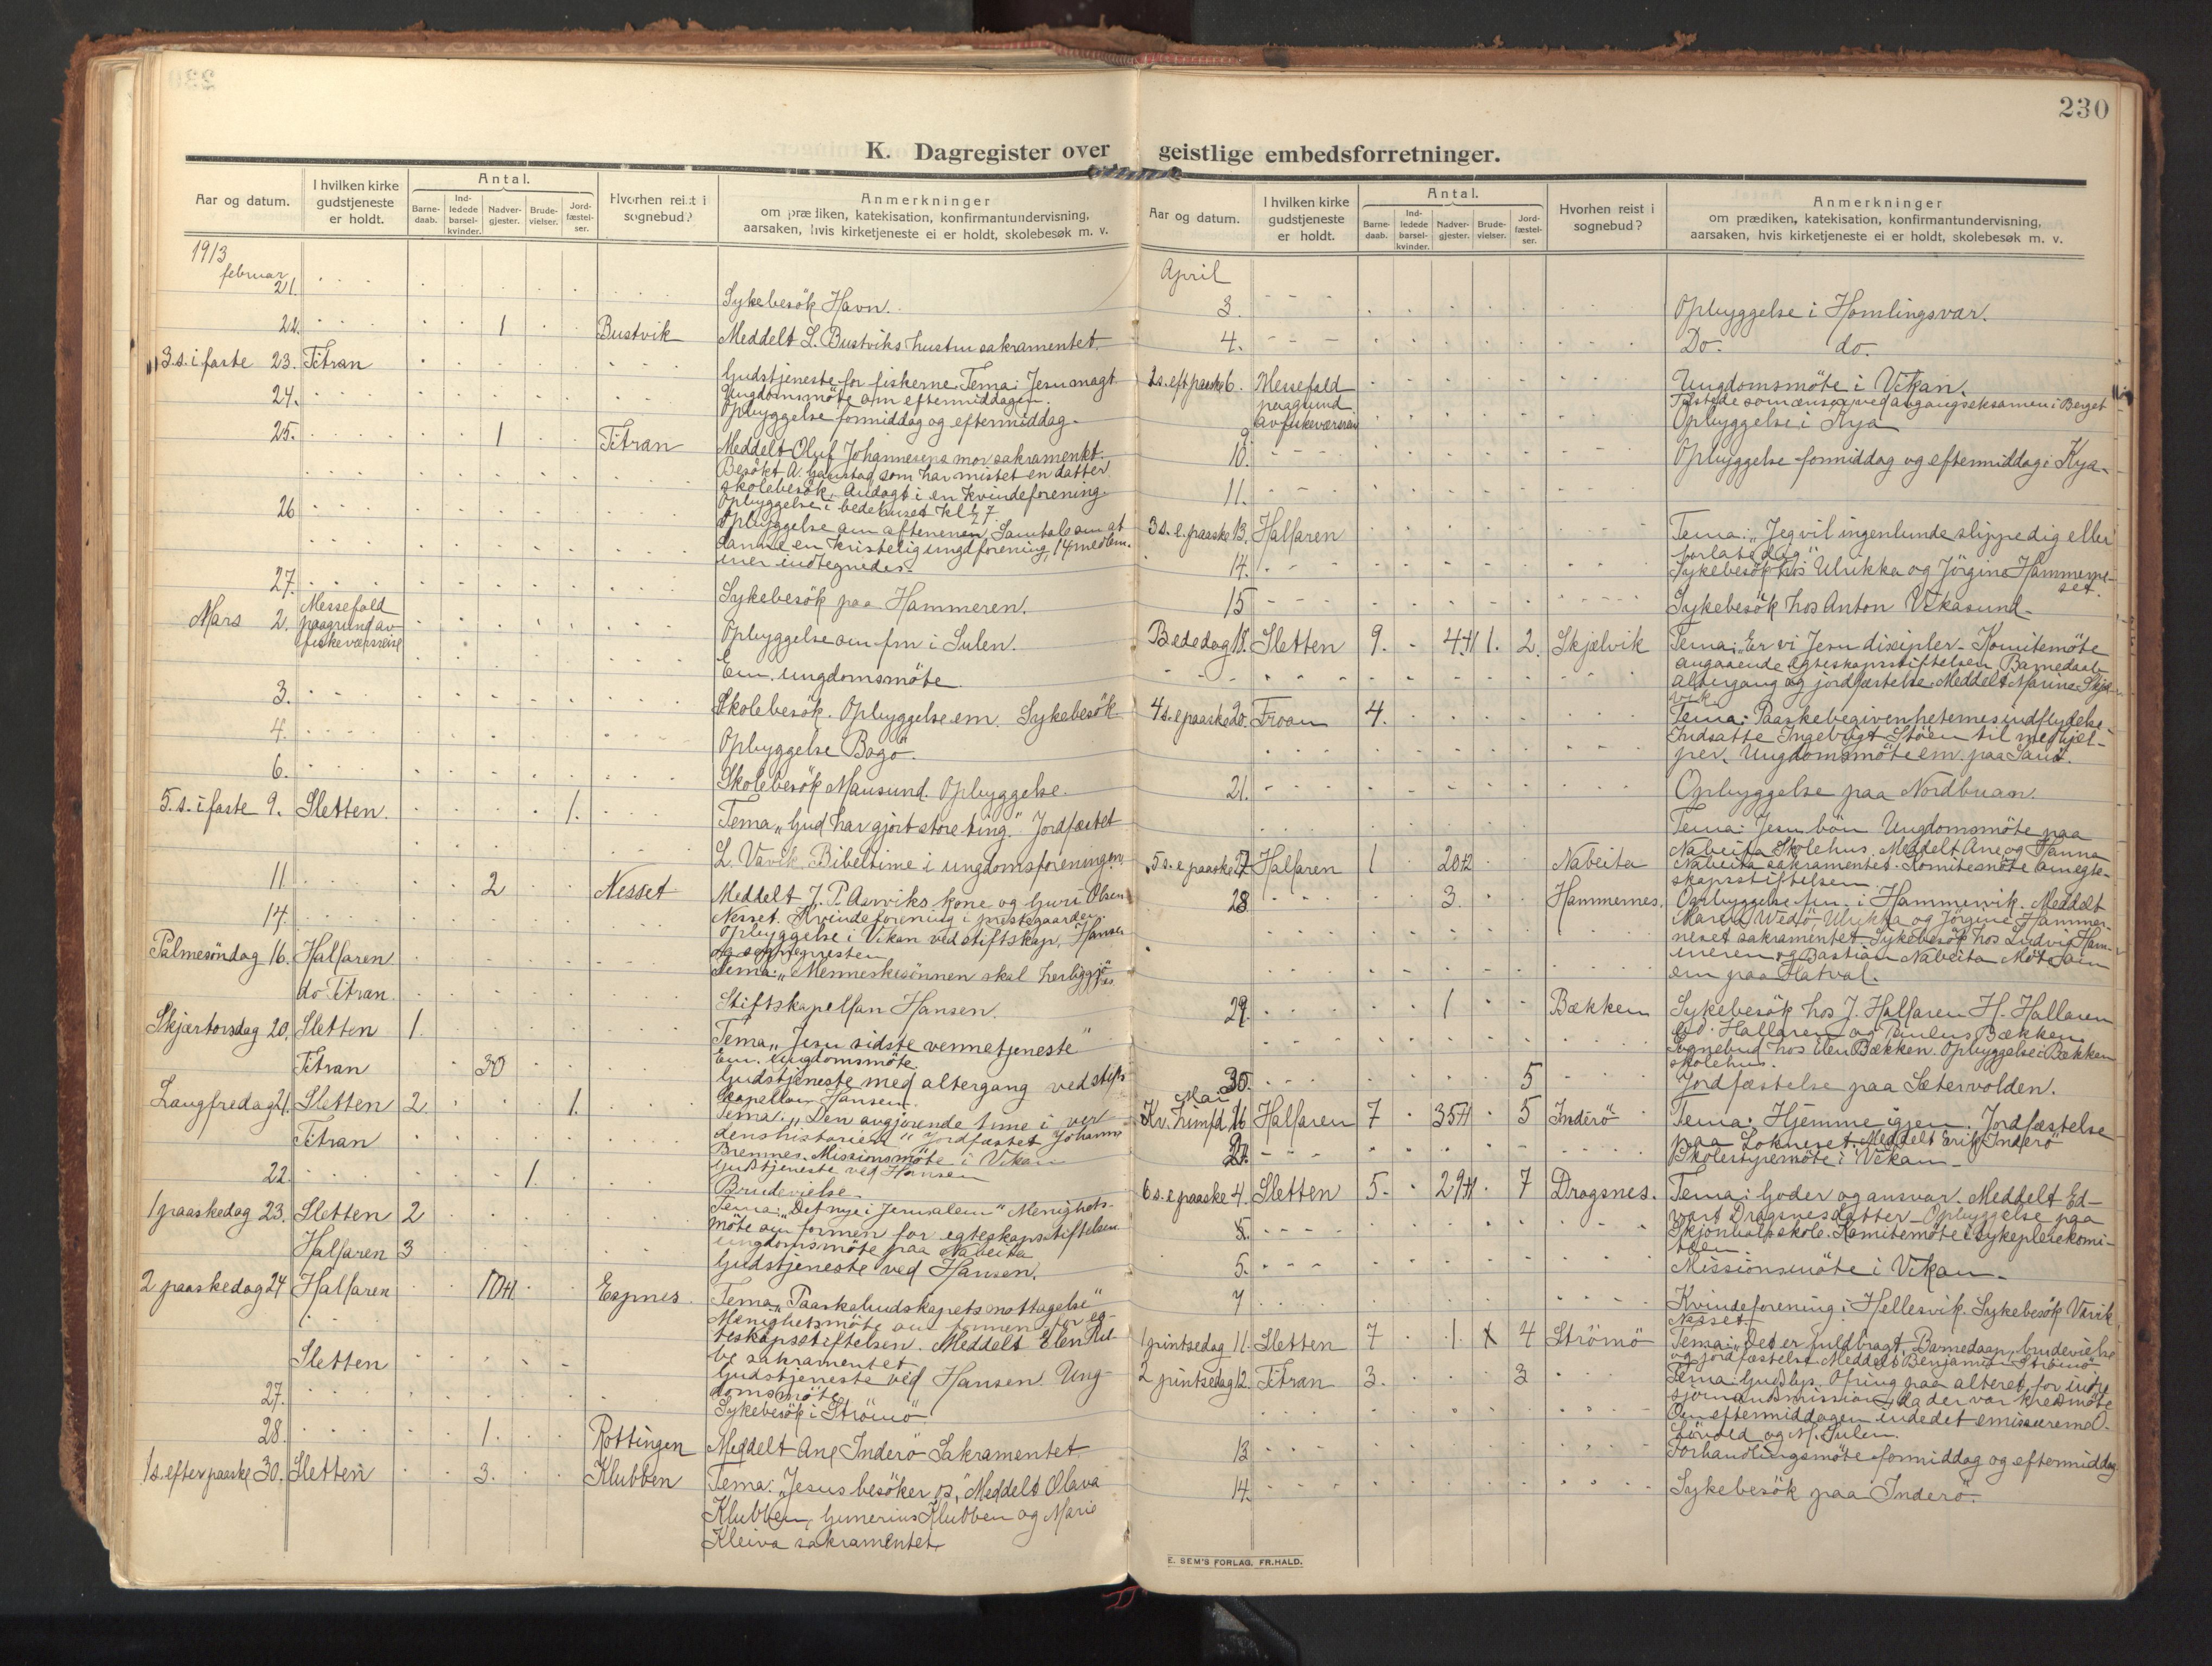 230
K. Dagregister over geistlige embedsforretninger.
Aar og datum.
I hvilken kirke gudstjeneste er holdt.
Antal.
Barne-daab.
Ind-ledede barsel-kvinder.
Nadver-gjester.
Brude-vielser.
Jord-fæstel-ser.
Hvorhen reist i sognebud?
Anmerkninger
om prædiken, katekisation, konfirmantundervisning,
aarsaken, hvis kirketjeneste ei er holdt, skolebesøk m. v.
1913
februar
21. Sykebesök Havn.
22. 1 Bustvik Meddelt L. Bustviks hustru sakramentet.
3.s. i faste 23. Titran Gudstjeneste for fiskerne. Tema: Jesu magt
Ungdomsmöte om eftermiddagen.
24. Opbyggelse formiddag og eftermiddag.
25. 1 Titran Meddelt Oluf Johannesens mor sakramentet.
Besökt A. Gaustad som har mistet en datter
skolebesök. Andagt i en kvindeforening.
Opbyggelse i bedehuset kl 7
26 Opbyggelse om aftenenen. Samtale om at
danne en kristelig ungd forening, 14 medlem-
mer indtegnedes.
27. Sykebesök paa Hammeren.
Mars 2. Messefald
paagrund av
fiskeværsreise
Opbyggelse om fm i Sulen.
Em. ungdomsmöte.
3. Skolebesök. Opbyggelse em. Sykebesök
4. Opbyggelse Bogö.
6. Skolebesök Mausund. Opbyggelse.
5. s. i faste 9. Sletten. 1. Tema „Gud har gjort store ting." Jordfæstet
L. Vavik. Bibeltime i ungdomsforeningen.
11 2 Nesset Meddelt J. P. Aarviks kone og Guri Olsen
Nesset. Kvindeforening i prestegaarden.
14. Opbyggelse i Vikan ved stiftskap. Hansen
og sognepresten
Palmesöndag 16. Halfaren Tema: „Menneskesönnen skal herliggjö
res.
do Titran. Stiftskapellan Hansen.
Skjærtorsdag 20. Sletten 1. Tema „Jesu sidste vennetjeneste"
Em. ungdomsmöte.
Titran 30 Gudstjeneste med altergang ved stifts
kapellan Hansen.
Langfredag 21. Sletten 2. 1. Tema: „Den avgjörende time i ver
denshistorien" Jordfæstet Johanna
Bremnes. Missionsmöte i Vikan
Titran Gudstjeneste ved Hansen
22. 1. Brudevielse.
1 paaskedag 23. Sletten 2 Tema: „Det nye i Jerusalem" Menighets-
möte om formen for egteskapsstiftelsen
ungdomsmöte paa Nabeita
Halfaren 3 Gudstjeneste ved Hansen.
2 paaskedag 24 Halfaren 10+1 Espnes Tema „Paaskebudskapets mottagelse"
Menighetsmöte om formen for eg-
teskapsstiftelsen. Meddelt Elen
sakramentet
Sletten Gudstjeneste ved Hansen. Ung-
domsmöte
27. Sykebesök i Strömö
28. 1. Rottingen Meddelt Ane Inderö Sakramentet
1 s. efter paaske 30. Sletten 3. Klubben Tema: „Jesus besöker os." Meddelt Olava
Klubben, Gunerius Klubben og Marie
Kleiva sakramentet.
Aar og datum.
I hvilken kirke gudstjeneste er holdt.
Antal.
Barne-daab.
Ind-ledede barsel-kvinder.
Nadver-gjester.
Brude-vielser.
Jord-fæstel-ser.
Hvorhen reist i sognebud?
Anmerkninger
om prædiken, katekisation, konfirmantundervisning,
aarsaken, hvis kirketjeneste ei er holdt, skolebesøk m. v.
April
3. Opbyggelse i Homlingsvær.
4. Do. do.
2 s. eft paaske 6. Messefald
paagrund
av fiskeværsreise
Ungdomsmöte i Vikan.
Tilstede som censor ved avgangseksamen i Berget
9 Opbyggelse i Kya
10. Opbyggelse formiddag og eftermiddag i Kya.
11.
3 s. e. paaske 13. Halfaren Tema: „Jeg vil ingenlunde slippe dig eller
forlate dig"
14. Sykebesök hos Ulrikka og Jörgine Hammerne-
set.
15 Sykebesök hos Anton Vikasund.
Bededag 18. Sletten 9. 4+1 1. 2. Skjælvik Tema: „Er vi Jesu disipler. Komitemöte
angaaende egteskapsstiftelsen. Barnedaab
altergang og jordfæstelse. Meddelt Marine Skjæl-
vik
4 s. e paaske 20. Froan 4. Tema: Paaskebegivenheternes indflydelse.
Indsatte Ingebrigt Stöen til medhjel-
per. Ungdomsmöte em. paa Sauö.
21. Opbyggelse paa Nordbuan.
Tema: Jesu bön Ungdomsmöte paa
5 s. e paaske 27 Halfaren 1 20+2 Nabeita Nabeita Skolehus. Meddelt Ane og Hanna
Nabeita sakramentet. Komitemöte om egte-
skapsstiftelsen.
28. 3. Hammernes. Opbyggelse fm. i Hammervik. Meddelt
Maren Wedö, Ulrikka og Jörgine Hammer-
neset sakramentet. Sykebesök hos Ludvig Ham-
meren og Bastian Nabeita Möte om
em paa Hatval.
29. 1 Bækken Sykebesök hos J. Halfaren H. Hallaren
Ed. Hallaren og Paulus Bækken
Sognebud hos Elen Bækken. Opbyggelse i Bækken
skolehus.
30. 5 Jordfæstelse paa Sætervolden.
Mai
Kr. himfd. 1 Halfaren 7 35+1 5 Inderö Tema: Hjemme igjen. Jordfæstelse
paa Lokneset. Meddelt Erik Inderö
2. Skolestyremöte i Vikan.
6 s. e paaske 4. Sletten 5. 29+1 7 Dragsnes. Tema: Goder og ansvar. Meddelt Ed-
vart Dragsnes datter. Opbyggelse paa
Skjönhals skole. Komitemöte i sykepleiekomi-
teen.
5. Missionsmöte i Vikan.
7 Kvindeforening i Hellesvik. Sykebesök Vavik
Nesset.
1 pintsedag 11. Sletten 7 1. 4 Strömö Tema: „Det er fuldbragt. Barnedaap, brudevielse
og jordfæstelse. Meddelt Benjamin Strömö
2 pintsedag 12. Titran 3. 3 Tema: Guds lys. Ofring paa alteret for indre
sjömandsmission, da der var kredsmöte
Om eftermiddagen indedet emissærerne O.
Lövold og M. Sulen.
13 Forhandlingsmöte formiddag og eftermiddag
14. Sykebesök paa Inderö.
E. SEM'S FORLAG. FR.HALD.